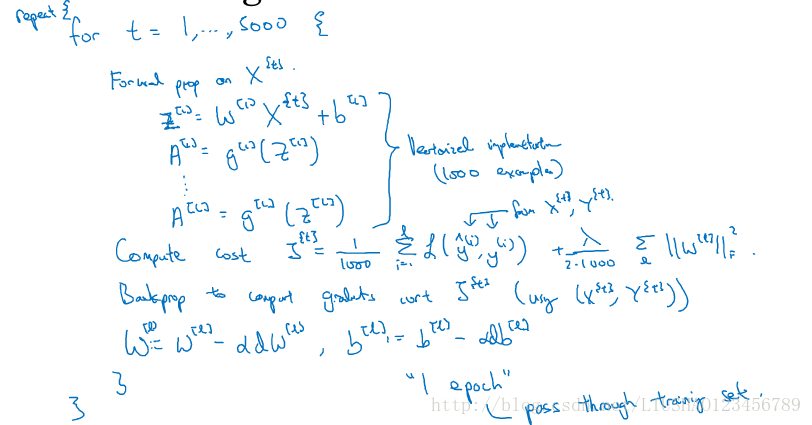 repeat {
for t = 1,...,5000 {
Forward prop on X^{t}.
Z^[1] = W^[1] X^{t} + b^[1]
A^[1] = g^[1](Z^[1])
⋮
A^[L] = g^[L](Z^[L])
Vectorized implementation
(1000 examples)
Compute cost J^{t} = 1/1000 Σ_{i=1}^{l} L(ŷ^(i), y^(i)) + λ/(2·1000) Σ_l ||W^[l]||_F^2.
from X^{t}, Y^{t}.
Backprop to comput gradients wrt J^{t} (using (X^{t}, Y^{t}))
W^[l] := W^[l] - αdW^[l], b^[l] := b^[l] - αdb^[l]
}
}
"1 epoch"
pass through training set.